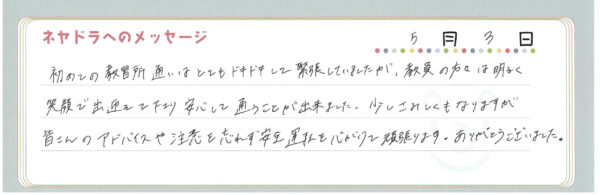 ネヤドラへのメッセージ
5月3日
初めての教習所通いはとてもドキドキして緊張していましたが、教員の方々は明るく
笑顔で出迎えて下さり安心して通うことが出来ました。少しさみしくもなりますが
皆さんのアドバイスや注意を忘れず安全運転を心がけて頑張ります。ありがとうございました。